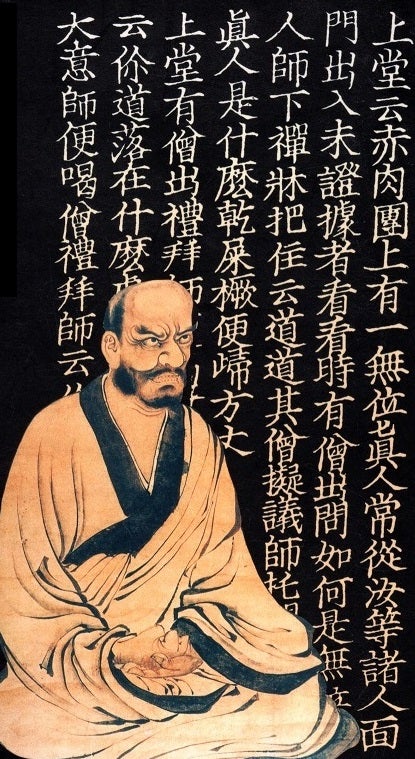 上堂云赤肉團上有一無位眞人常從汝等諸人面
門出入未證據者看看時有僧出問如何是無
人師下禪牀把住云道道其僧擬議師托
眞人是什麼乾屎橛便歸方丈
上堂有僧出禮拜師
云伱道落在什麼
大意師便喝僧禮拜師云